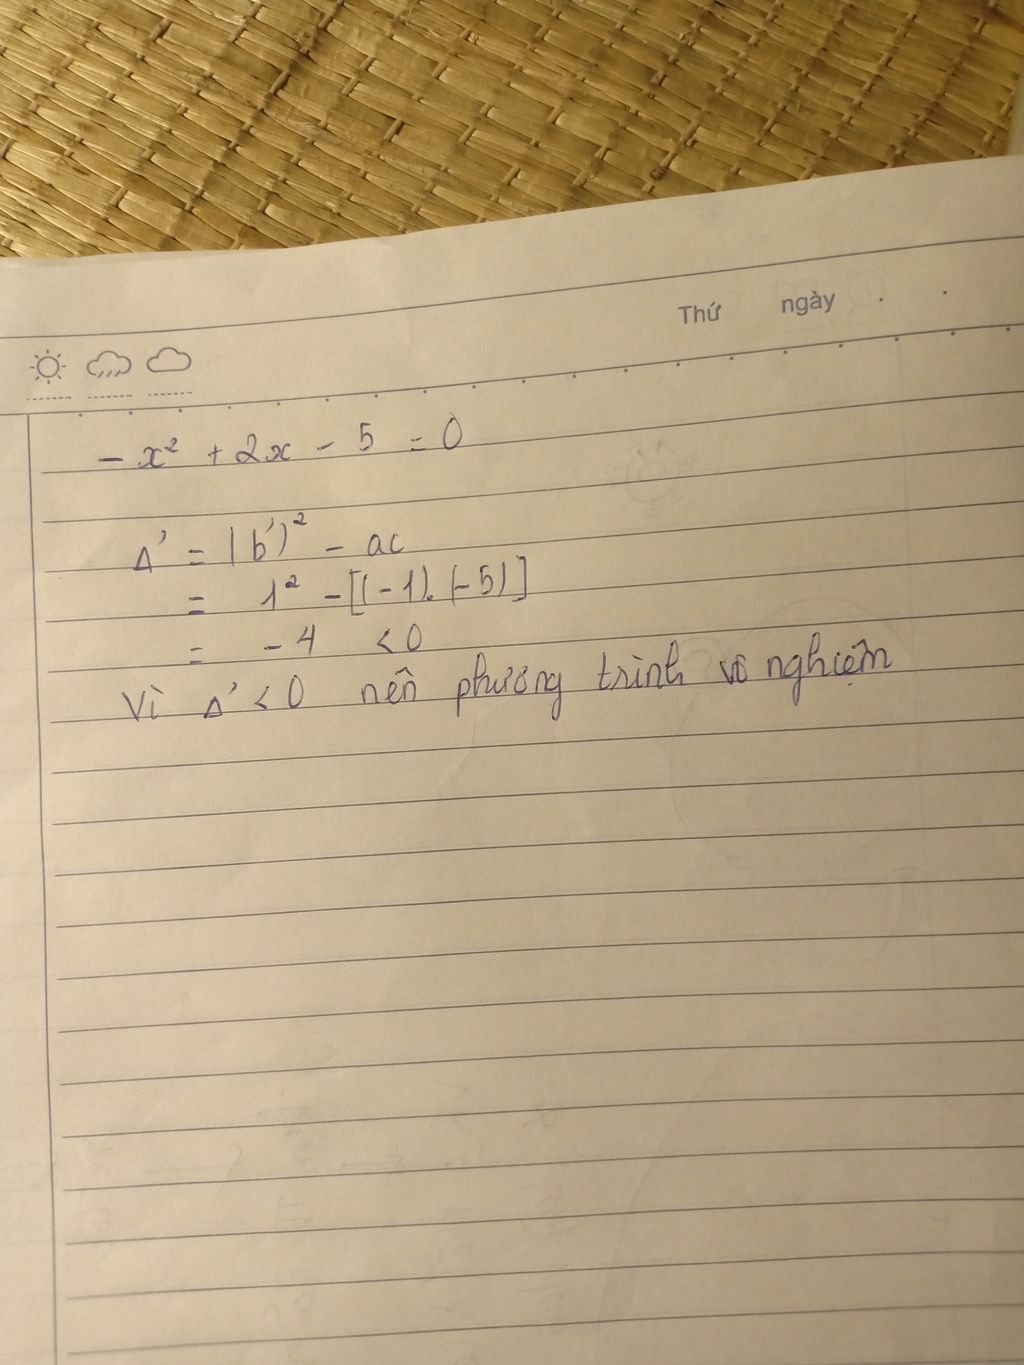 Thứ ngày . .
- x² + 2x - 5 = 0
Δ' = (b')² - ac
= 1² - [(-1). (-5)]
= -4 < 0
Vì Δ' < 0 nên phương trình vô nghiệm